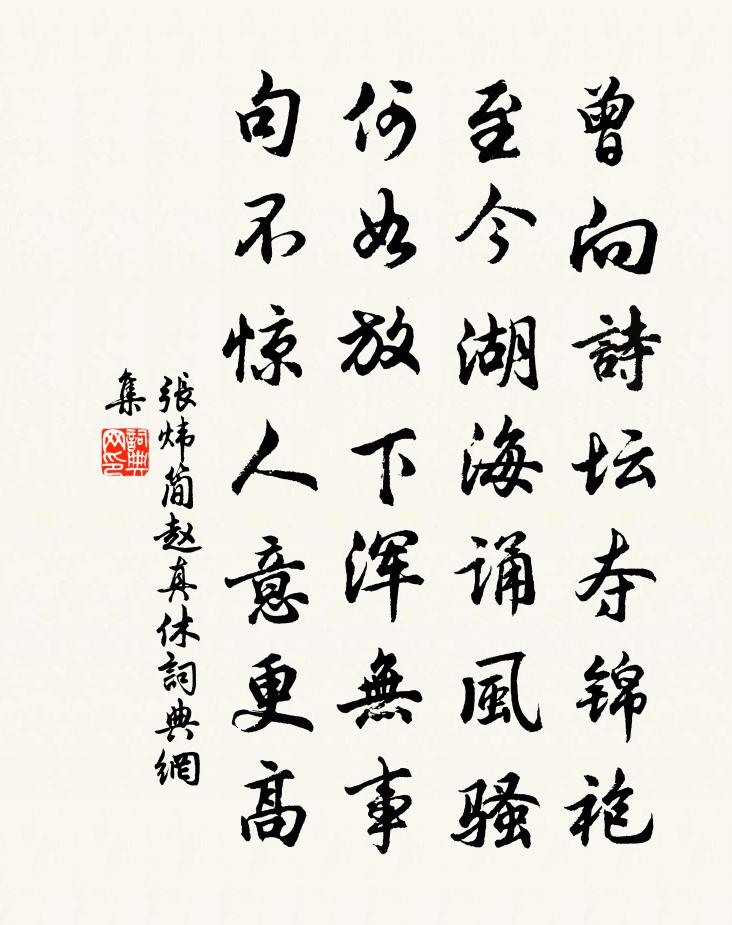 曾向詩坛夺锦袍
至今湖海诵風骚
何如放下浑無事
句不惊人意更高
張炜简赵真休詞典網
集
詞典
网印